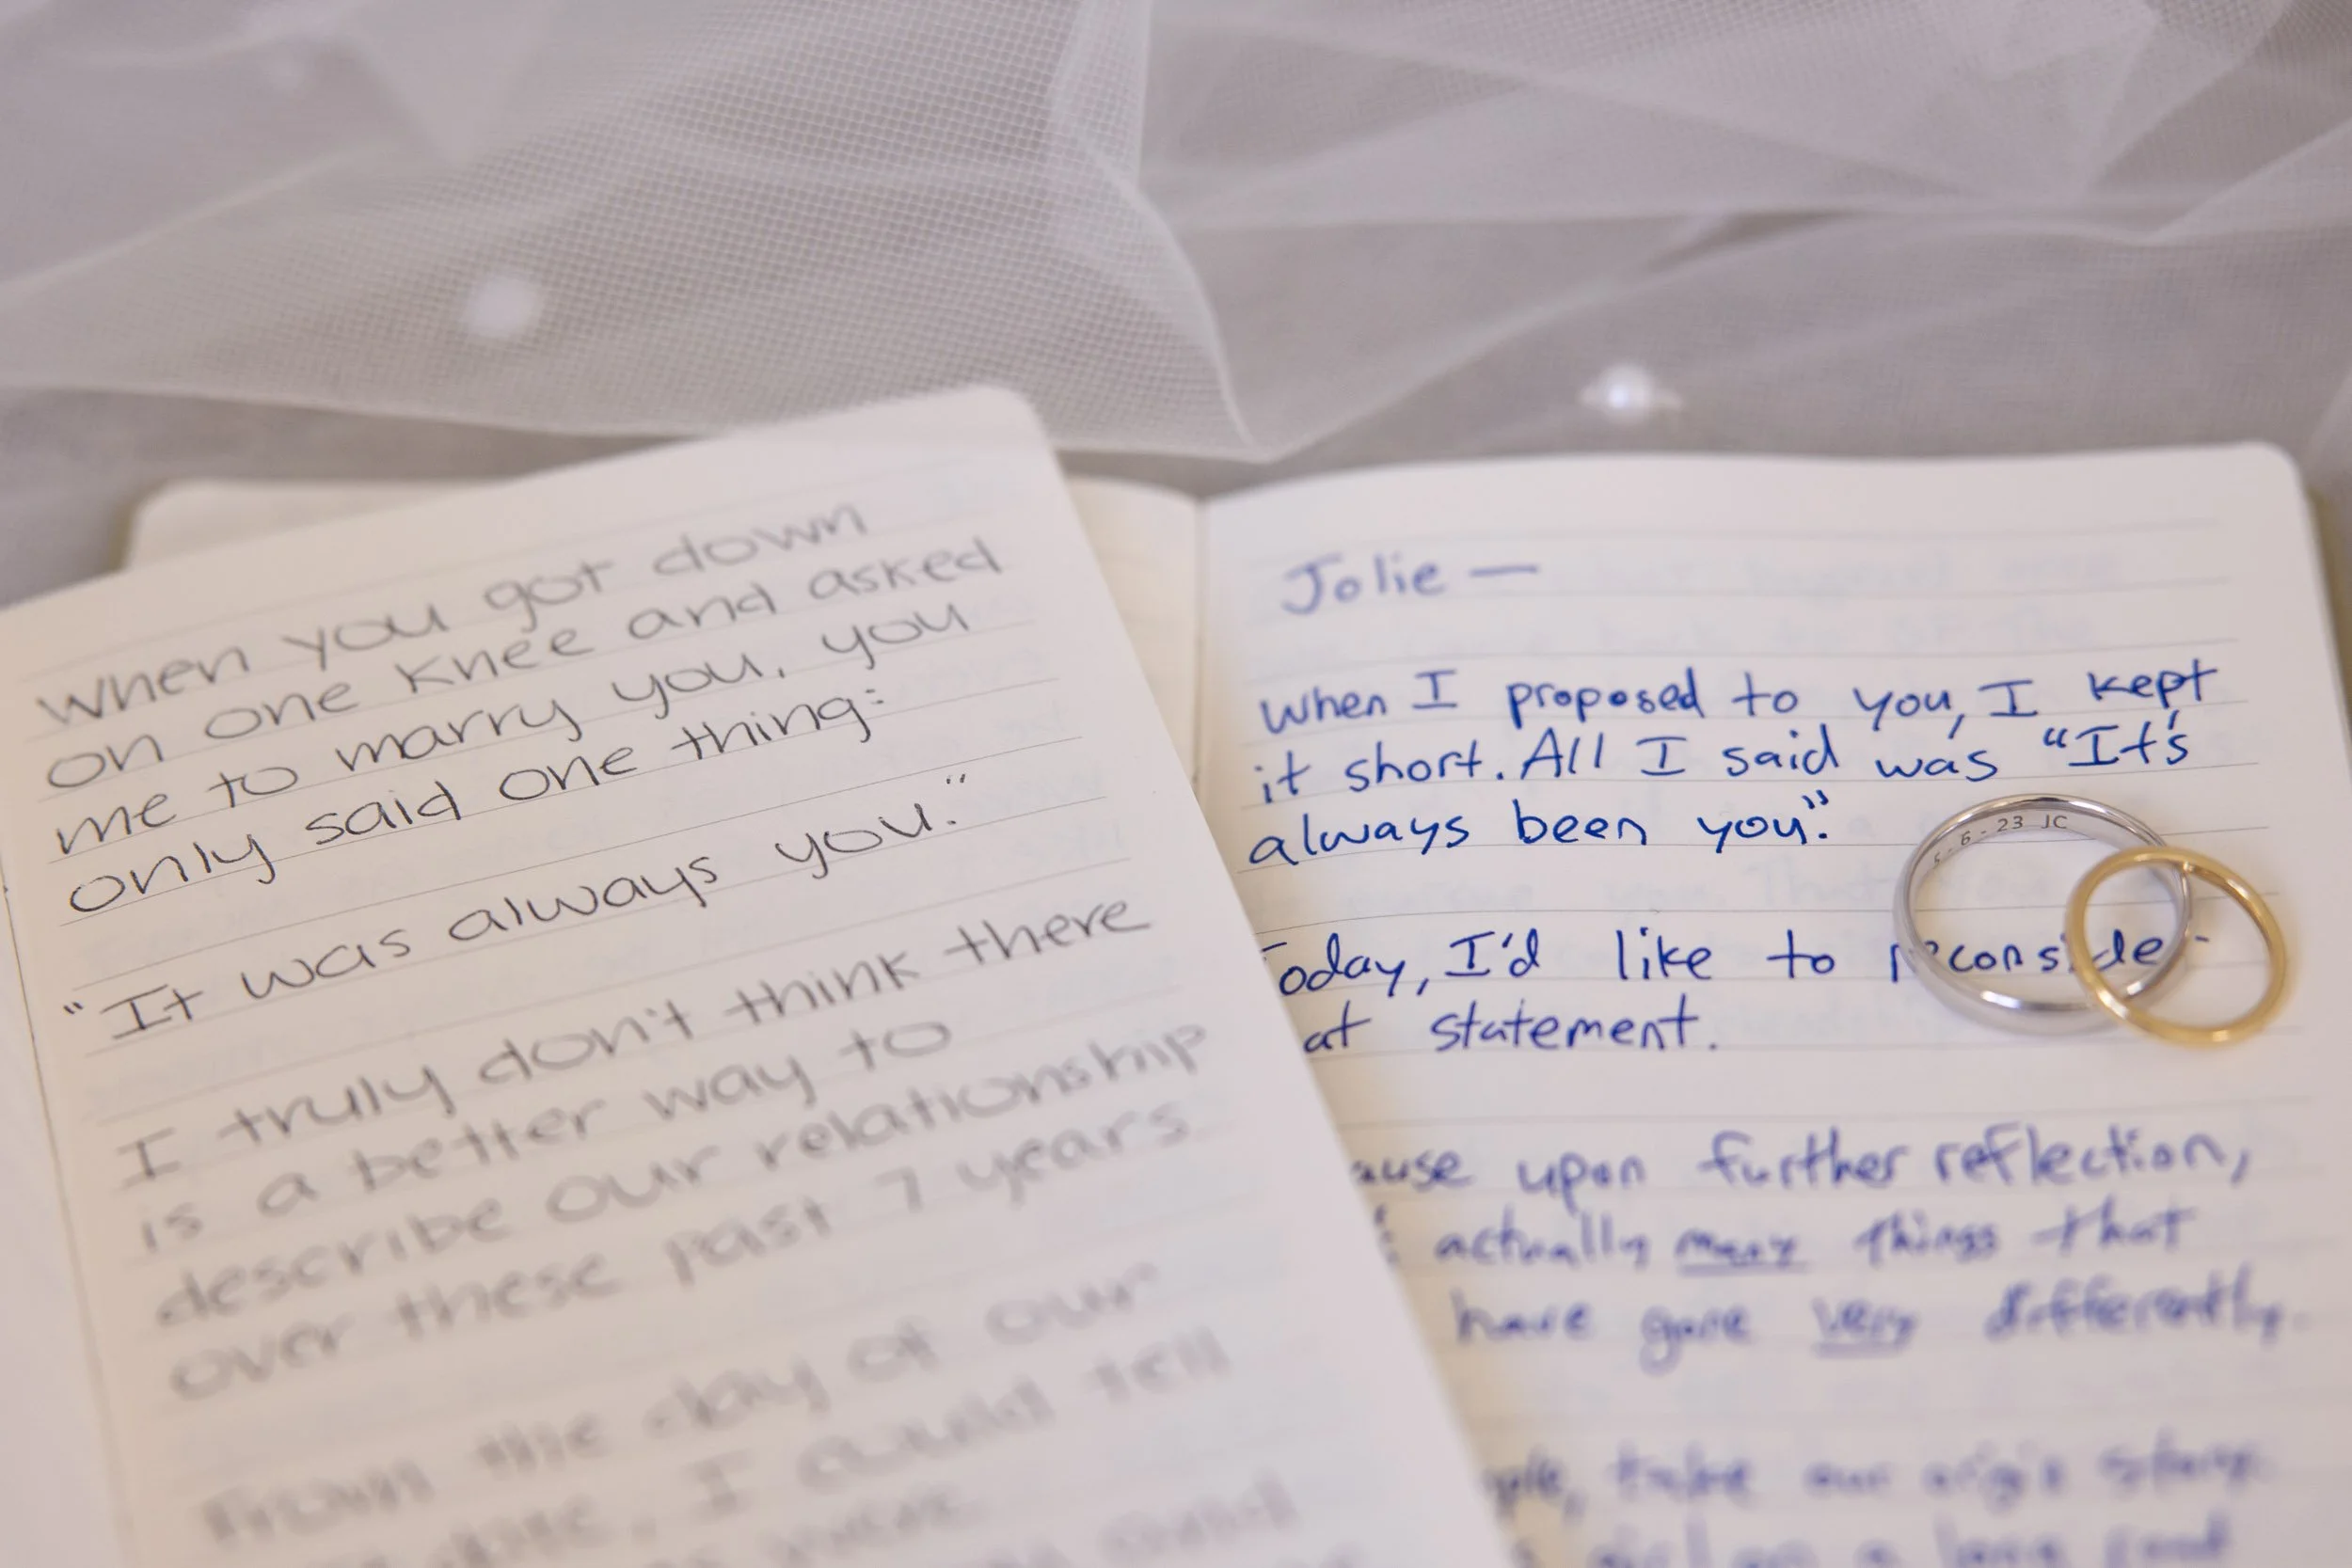 When you got down
on one knee and asked
me to marry you, you
only said one thing:
"It was always you."
I truly don't think there
is a better way to
describe our relationship
over these past 7 years.
From the day of our
date, I could tell
and
Jolie —
When I proposed to you, I kept
it short. All I said was "It's
always been you".
Today, I'd like to reconsider
at statement.
ause upon further reflection,
actually many things that
have gone very differently.
ple, take our origin story.
girl on a long
5-6-23 JC